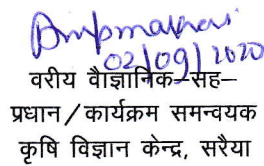 02/09/2020
वरीय वैाज्ञानिक–सह–
प्रधान / कार्यक्रम समन्वयक
कृषि विज्ञान केन्द्र, सरैया